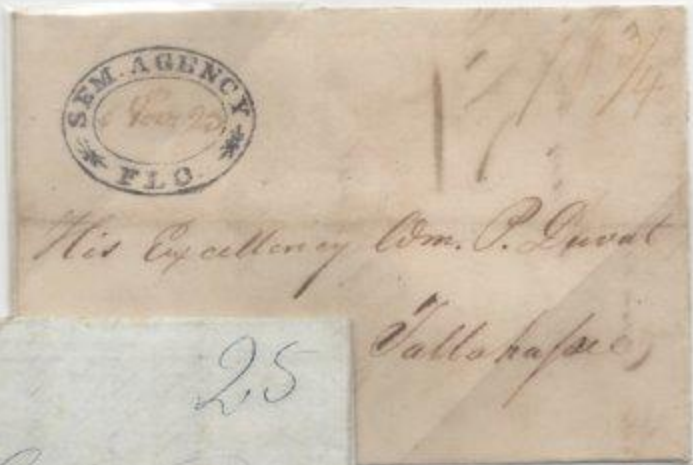 SEM. AGENCY
Nov 23
FLO.
His Excellency Wm. P. Duval
Tallahassee,
25